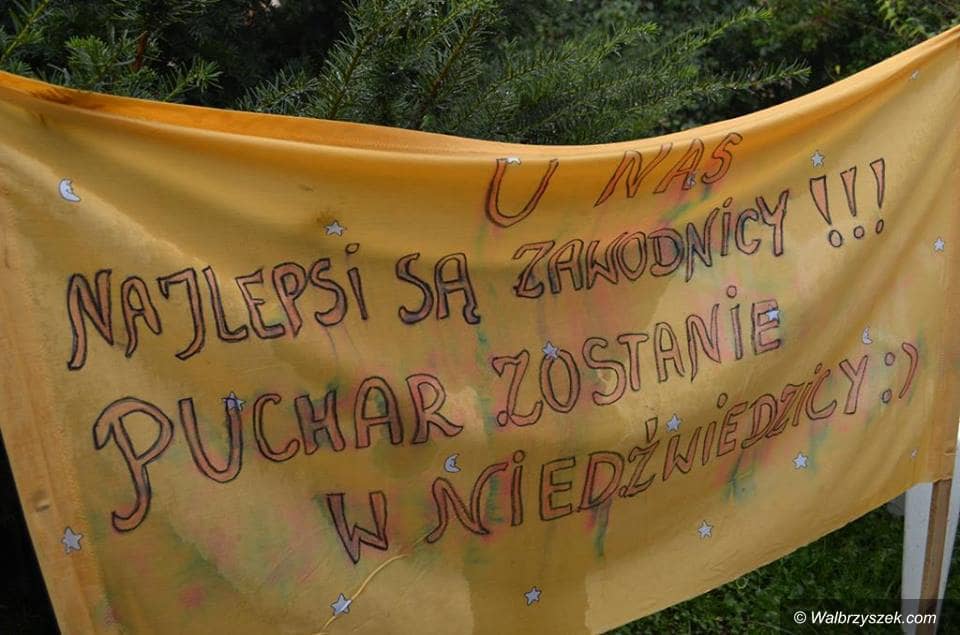 U NAS
NAJLEPSi SĄ ZAWODNiCY !!!
PUCHAR ZOSTANiE
W NiEDŹWiEDZiCY :)
© Walbrzyszek.com